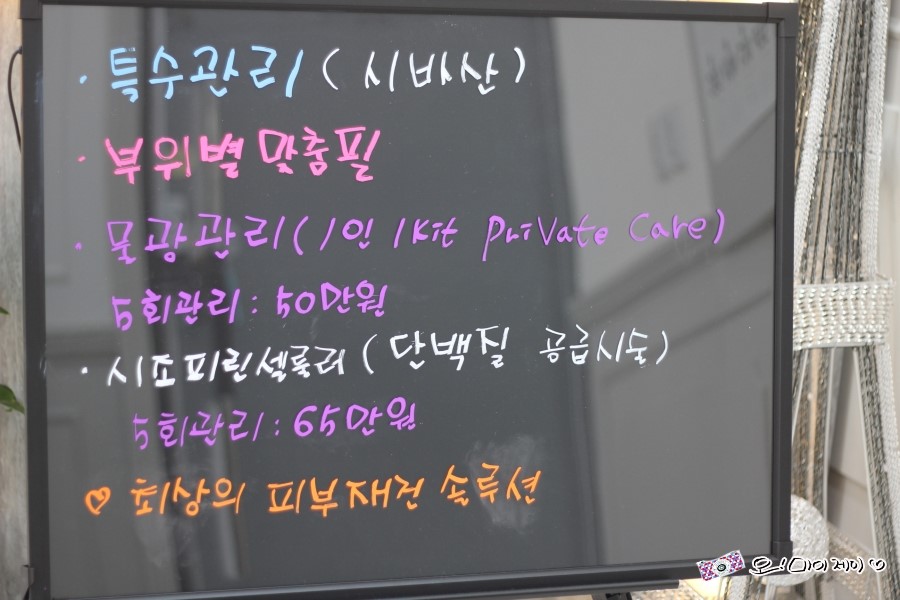 · 특수관리 ( 시바산 )
· 부위별 맞춤필
· 물광관리 ( 1인 1Kit Private Care )
5회관리 : 50만원
· 시조피린셀룰러 ( 단백질 공급시술 )
5회관리 : 65만원
♡ 최상의 피부재건 솔루션
오!마이제이♡